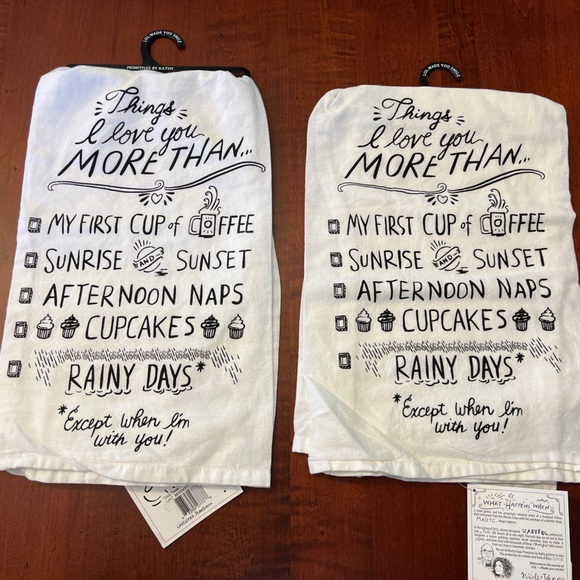 LOL-MADE YOU SMILE
PRIMITIVES BY KATHY
Things
I love you
MORE THAN...
MY FIRST CUP of COFFEE
SUNRISE AND SUNSET
AFTERNOON NAPS
CUPCAKES
RAINY DAYS*
*Except when I'm
with you!
LOL-MADE YOU SMILE
Things
I love you
MORE THAN...
MY FIRST CUP of COFFEE
SUNRISE AND SUNSET
AFTERNOON NAPS
CUPCAKES
RAINY DAYS*
*Except when I'm
with you!
WHAT HAPPENS WHEN